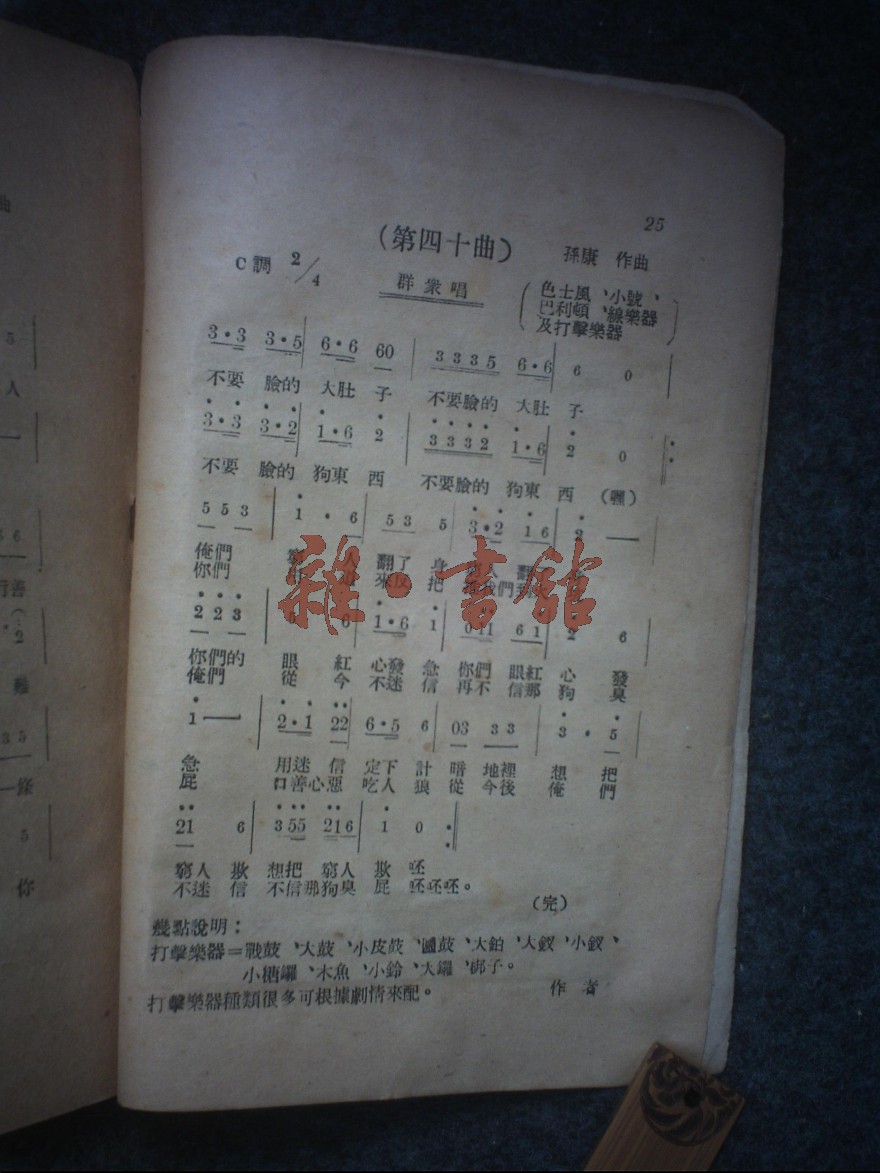 25
(第四十曲)
孫康 作曲
C調 2/4
群衆唱
(色士風、小號、
巴利頓、線樂器
及打擊樂器)
3·3 3·5 | 6·6 60 | 3335 6·6 | 6 0 |
不要 臉的 大肚 子 不要臉的 大肚 子
3·3 3·2 | 1·6 2 | 3332 1·6 | 2 0 :
不要 臉的 狗東 西 不要臉的 狗東 西 (喔)
553 | 1·6 | 53 5 | 3·2 16 | 2 — |
俺們 人 翻了 身
你們 來反 把 我們
223 | 6 | 1·6 1 | 011 61 | 2 6 |
你們的 眼 紅 心發 急 你們 眼紅 心 發
俺們 從 今 不迷 信 再不 信那 狗 臭
1 — | 2·1 22 | 6·5 6 | 03 33 | 3·5 |
急 用迷 信 定下 計 暗 地裡 想 把
屁 口善心惡 吃人 狼 從 今後 俺 們
21 6 | 355 216 | 1 0 :
窮人 欺 想把 窮人 欺 呸
不迷 信 不信那狗臭 屁 呸呸呸。
(完)
幾點說明:
打擊樂器=戰鼓、大鼓、小皮鼓、國鼓、大鉑、大釵、小釵、
小桶鑼、木魚、小鈴、大鑼、梆子。
打擊樂器種類很多可根據劇情來配。 作者
雜·書館
5
人
善
2
難
35
條
5
你